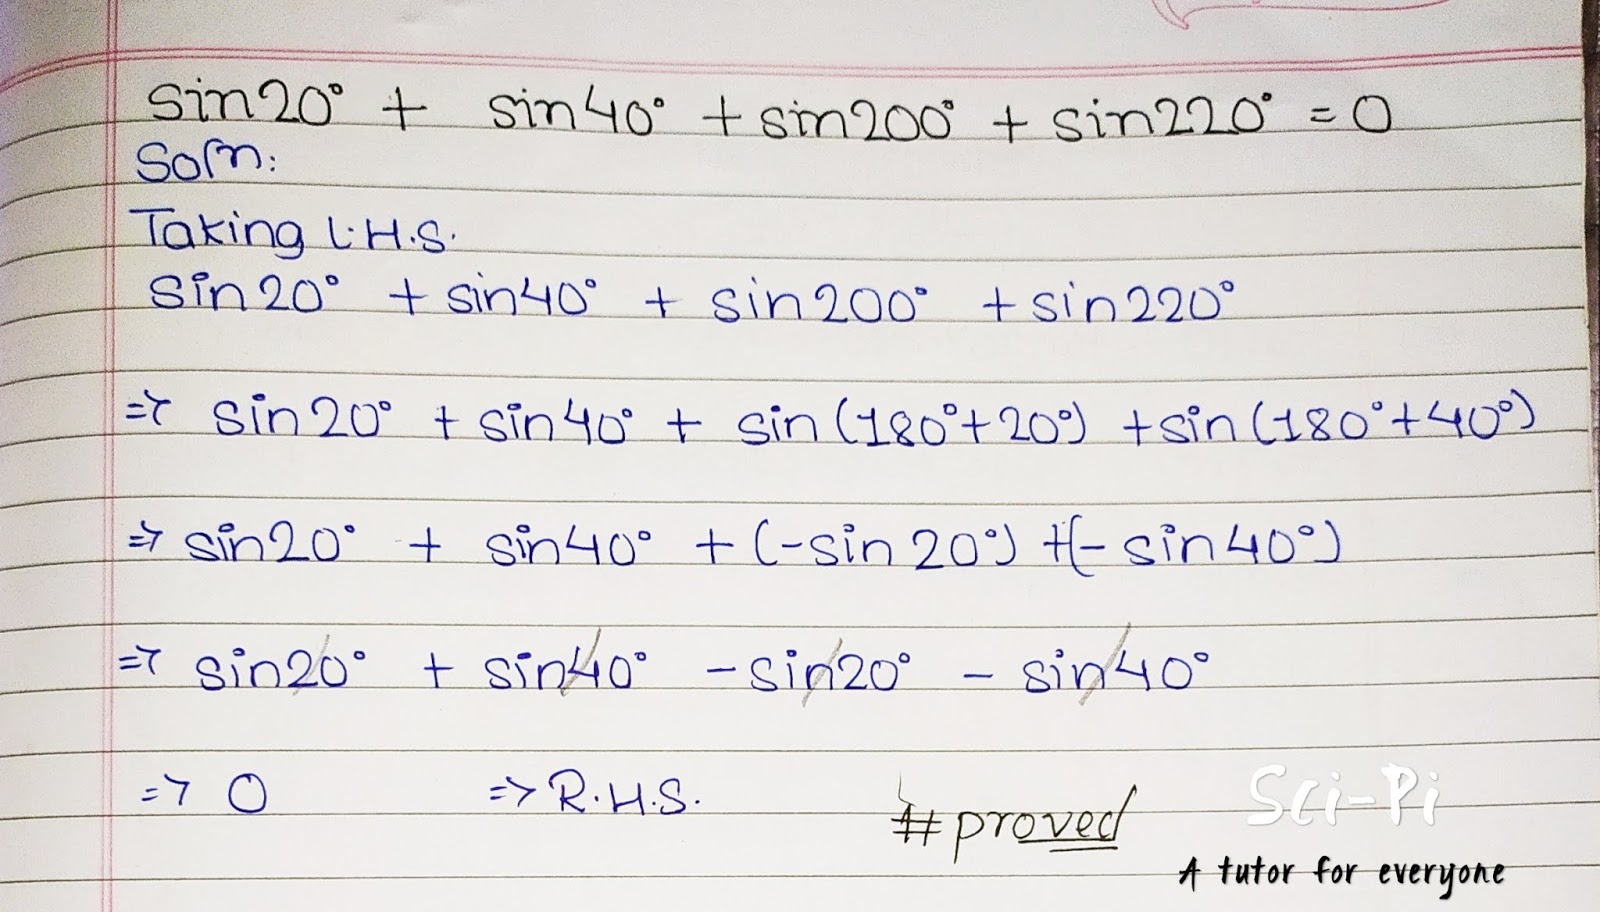 sin20° + sin40° + sin200° + sin220° = 0
Soln:
Taking L.H.S.
sin20° + sin40° + sin200° + sin220°
=> sin20° + sin40° + sin(180°+20°) + sin(180°+40°)
=> sin20° + sin40° + (-sin20°) + (-sin40°)
=> sin20° + sin40° - sin20° - sin40°
=> 0 => R.H.S.
#proved
Sci-Pi
A tutor for everyone